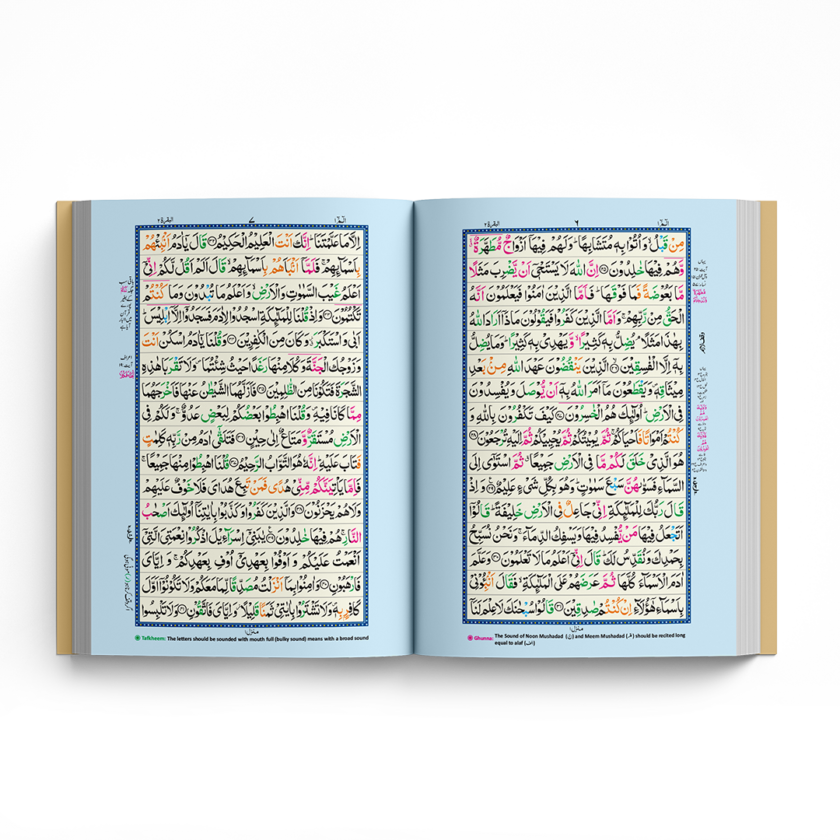 الٓمّٓ ١ ٦ البقرة ٢
مِنْ قَبْلُ وَاُتُوْا بِهٖ مُتَشَابِهًا ؕ وَلَهُمْ فِيْهَاۤ اَزْوَاجٌ مُّطَهَّرَةٌ ۙ
وَّهُمْ فِيْهَا خٰلِدُوْنَ ﴿۲۵﴾ اِنَّ اللّٰهَ لَا يَسْتَحْيٖۤ اَنْ يَّضْرِبَ مَثَلًا
مَّا بَعُوْضَةً فَمَا فَوْقَهَا ؕ فَاَمَّا الَّذِيْنَ اٰمَنُوْا فَيَعْلَمُوْنَ اَنَّهُ
الْحَقُّ مِنْ رَّبِّهِمْ ۚ وَاَمَّا الَّذِيْنَ كَفَرُوْا فَيَقُوْلُوْنَ مَاذَاۤ اَرَادَ اللّٰهُ
بِهٰذَا مَثَلًا ۘ يُضِلُّ بِهٖ كَثِيْرًا ۙ وَّيَهْدِىْ بِهٖ كَثِيْرًا ؕ وَمَا يُضِلُّ
بِهٖۤ اِلَّا الْفٰسِقِيْنَ ﴿۲۶﴾ الَّذِيْنَ يَنْقُضُوْنَ عَهْدَ اللّٰهِ مِنْۢ بَعْدِ
مِيْثَاقِهٖ وَيَقْطَعُوْنَ مَاۤ اَمَرَ اللّٰهُ بِهٖۤ اَنْ يُّوْصَلَ وَيُفْسِدُوْنَ
فِى الْاَرْضِ ؕ اُولٰٓئِكَ هُمُ الْخٰسِرُوْنَ ﴿۲۷﴾ كَيْفَ تَكْفُرُوْنَ بِاللّٰهِ وَ
كُنْتُمْ اَمْوَاتًا فَاَحْيَاكُمْ ۚ ثُمَّ يُمِيْتُكُمْ ثُمَّ يُحْيِيْكُمْ ثُمَّ اِلَيْهِ تُرْجَعُوْنَ ﴿۲۸﴾
هُوَ الَّذِىْ خَلَقَ لَكُمْ مَّا فِى الْاَرْضِ جَمِيْعًا ۗ ثُمَّ اسْتَوٰۤى اِلَى
السَّمَآءِ فَسَوّٰىهُنَّ سَبْعَ سَمٰوٰتٍ ؕ وَهُوَ بِكُلِّ شَىْءٍ عَلِيْمٌ ﴿۲۹﴾ وَ اِذْ
قَالَ رَبُّكَ لِلْمَلٰٓئِكَةِ اِنِّىْ جَاعِلٌ فِى الْاَرْضِ خَلِيْفَةً ؕ قَالُوْۤا
اَتَجْعَلُ فِيْهَا مَنْ يُّفْسِدُ فِيْهَا وَيَسْفِكُ الدِّمَآءَ ۚ وَنَحْنُ نُسَبِّحُ
بِحَمْدِكَ وَنُقَدِّسُ لَكَ ؕ قَالَ اِنِّىْۤ اَعْلَمُ مَا لَا تَعْلَمُوْنَ ﴿۳۰﴾ وَعَلَّمَ
اٰدَمَ الْاَسْمَآءَ كُلَّهَا ثُمَّ عَرَضَهُمْ عَلَى الْمَلٰٓئِكَةِ ۙ فَقَالَ اَنْۢبِـُٔوْنِىْ
بِاَسْمَآءِ هٰٓؤُلَآءِ اِنْ كُنْتُمْ صٰدِقِيْنَ ﴿۳۱﴾ قَالُوْا سُبْحٰنَكَ لَا عِلْمَ لَنَاۤ
منزل ١
Ghunna: The Sound of Noon Mushadad (نّ) and Meem Mushadad (مّ) should be recited long
equal to alaf (الف)
الٓمّٓ ١ ٧ البقرة ٢
اِلَّا مَا عَلَّمْتَنَا ؕ اِنَّكَ اَنْتَ الْعَلِيْمُ الْحَكِيْمُ ﴿۳۲﴾ قَالَ يٰۤاٰدَمُ اَنْۢبِئْهُمْ
بِاَسْمَآئِهِمْ ۚ فَلَمَّاۤ اَنْۢبَاَهُمْ بِاَسْمَآئِهِمْ ۙ قَالَ اَلَمْ اَقُلْ لَّكُمْ اِنِّىْۤ
اَعْلَمُ غَيْبَ السَّمٰوٰتِ وَالْاَرْضِ ۙ وَاَعْلَمُ مَا تُبْدُوْنَ وَمَا كُنْتُمْ
تَكْتُمُوْنَ ﴿۳۳﴾ وَاِذْ قُلْنَا لِلْمَلٰٓئِكَةِ اسْجُدُوْا لِاٰدَمَ فَسَجَدُوْۤا اِلَّاۤ اِبْلِيْسَ ؕ
اَبٰى وَاسْتَكْبَرَ ۗ وَكَانَ مِنَ الْكٰفِرِيْنَ ﴿۳۴﴾ وَقُلْنَا يٰۤاٰدَمُ اسْكُنْ اَنْتَ
وَزَوْجُكَ الْجَنَّةَ وَكُلَا مِنْهَا رَغَدًا حَيْثُ شِئْتُمَا ۪ وَلَا تَقْرَبَا هٰذِهِ
الشَّجَرَةَ فَتَكُوْنَا مِنَ الظّٰلِمِيْنَ ﴿۳۵﴾ فَاَزَلَّهُمَا الشَّيْطٰنُ عَنْهَا فَاَخْرَجَهُمَا
مِمَّا كَانَا فِيْهِ ۪ وَقُلْنَا اهْبِطُوْا بَعْضُكُمْ لِبَعْضٍ عَدُوٌّ ۚ وَلَكُمْ فِى
الْاَرْضِ مُسْتَقَرٌّ وَّمَتَاعٌ اِلٰى حِيْنٍ ﴿۳۶﴾ فَتَلَقّٰۤى اٰدَمُ مِنْ رَّبِّهٖ كَلِمٰتٍ
فَتَابَ عَلَيْهِ ؕ اِنَّهٗ هُوَ التَّوَّابُ الرَّحِيْمُ ﴿۳۷﴾ قُلْنَا اهْبِطُوْا مِنْهَا جَمِيْعًا ۚ
فَاِمَّا يَاْتِيَنَّكُمْ مِّنِّىْ هُدًى فَمَنْ تَبِعَ هُدَاىَ فَلَا خَوْفٌ عَلَيْهِمْ
وَلَا هُمْ يَحْزَنُوْنَ ﴿۳۸﴾ وَالَّذِيْنَ كَفَرُوْا وَكَذَّبُوْا بِاٰيٰتِنَاۤ اُولٰٓئِكَ اَصْحٰبُ
النَّارِ ۚ هُمْ فِيْهَا خٰلِدُوْنَ ﴿۳۹﴾ يٰبَنِىْۤ اِسْرَآءِيْلَ اذْكُرُوْا نِعْمَتِىَ الَّتِىْۤ
اَنْعَمْتُ عَلَيْكُمْ وَاَوْفُوْا بِعَهْدِىْۤ اُوْفِ بِعَهْدِكُمْ ۚ وَاِيَّاىَ
فَارْهَبُوْنِ ﴿۴۰﴾ وَاٰمِنُوْا بِمَاۤ اَنْزَلْتُ مُصَدِّقًا لِّمَا مَعَكُمْ وَلَا تَكُوْنُوْۤا اَوَّلَ
كَافِرٍۢ بِهٖ ۪ وَلَا تَشْتَرُوْا بِاٰيٰتِىْ ثَمَنًا قَلِيْلًا ۫ وَّاِيَّاىَ فَاتَّقُوْنِ ﴿۴۱﴾ وَلَا تَلْبِسُوا
منزل ١
Tafkheem: The letters should be sounded with mouth full (bulky sound) means with a broad sound